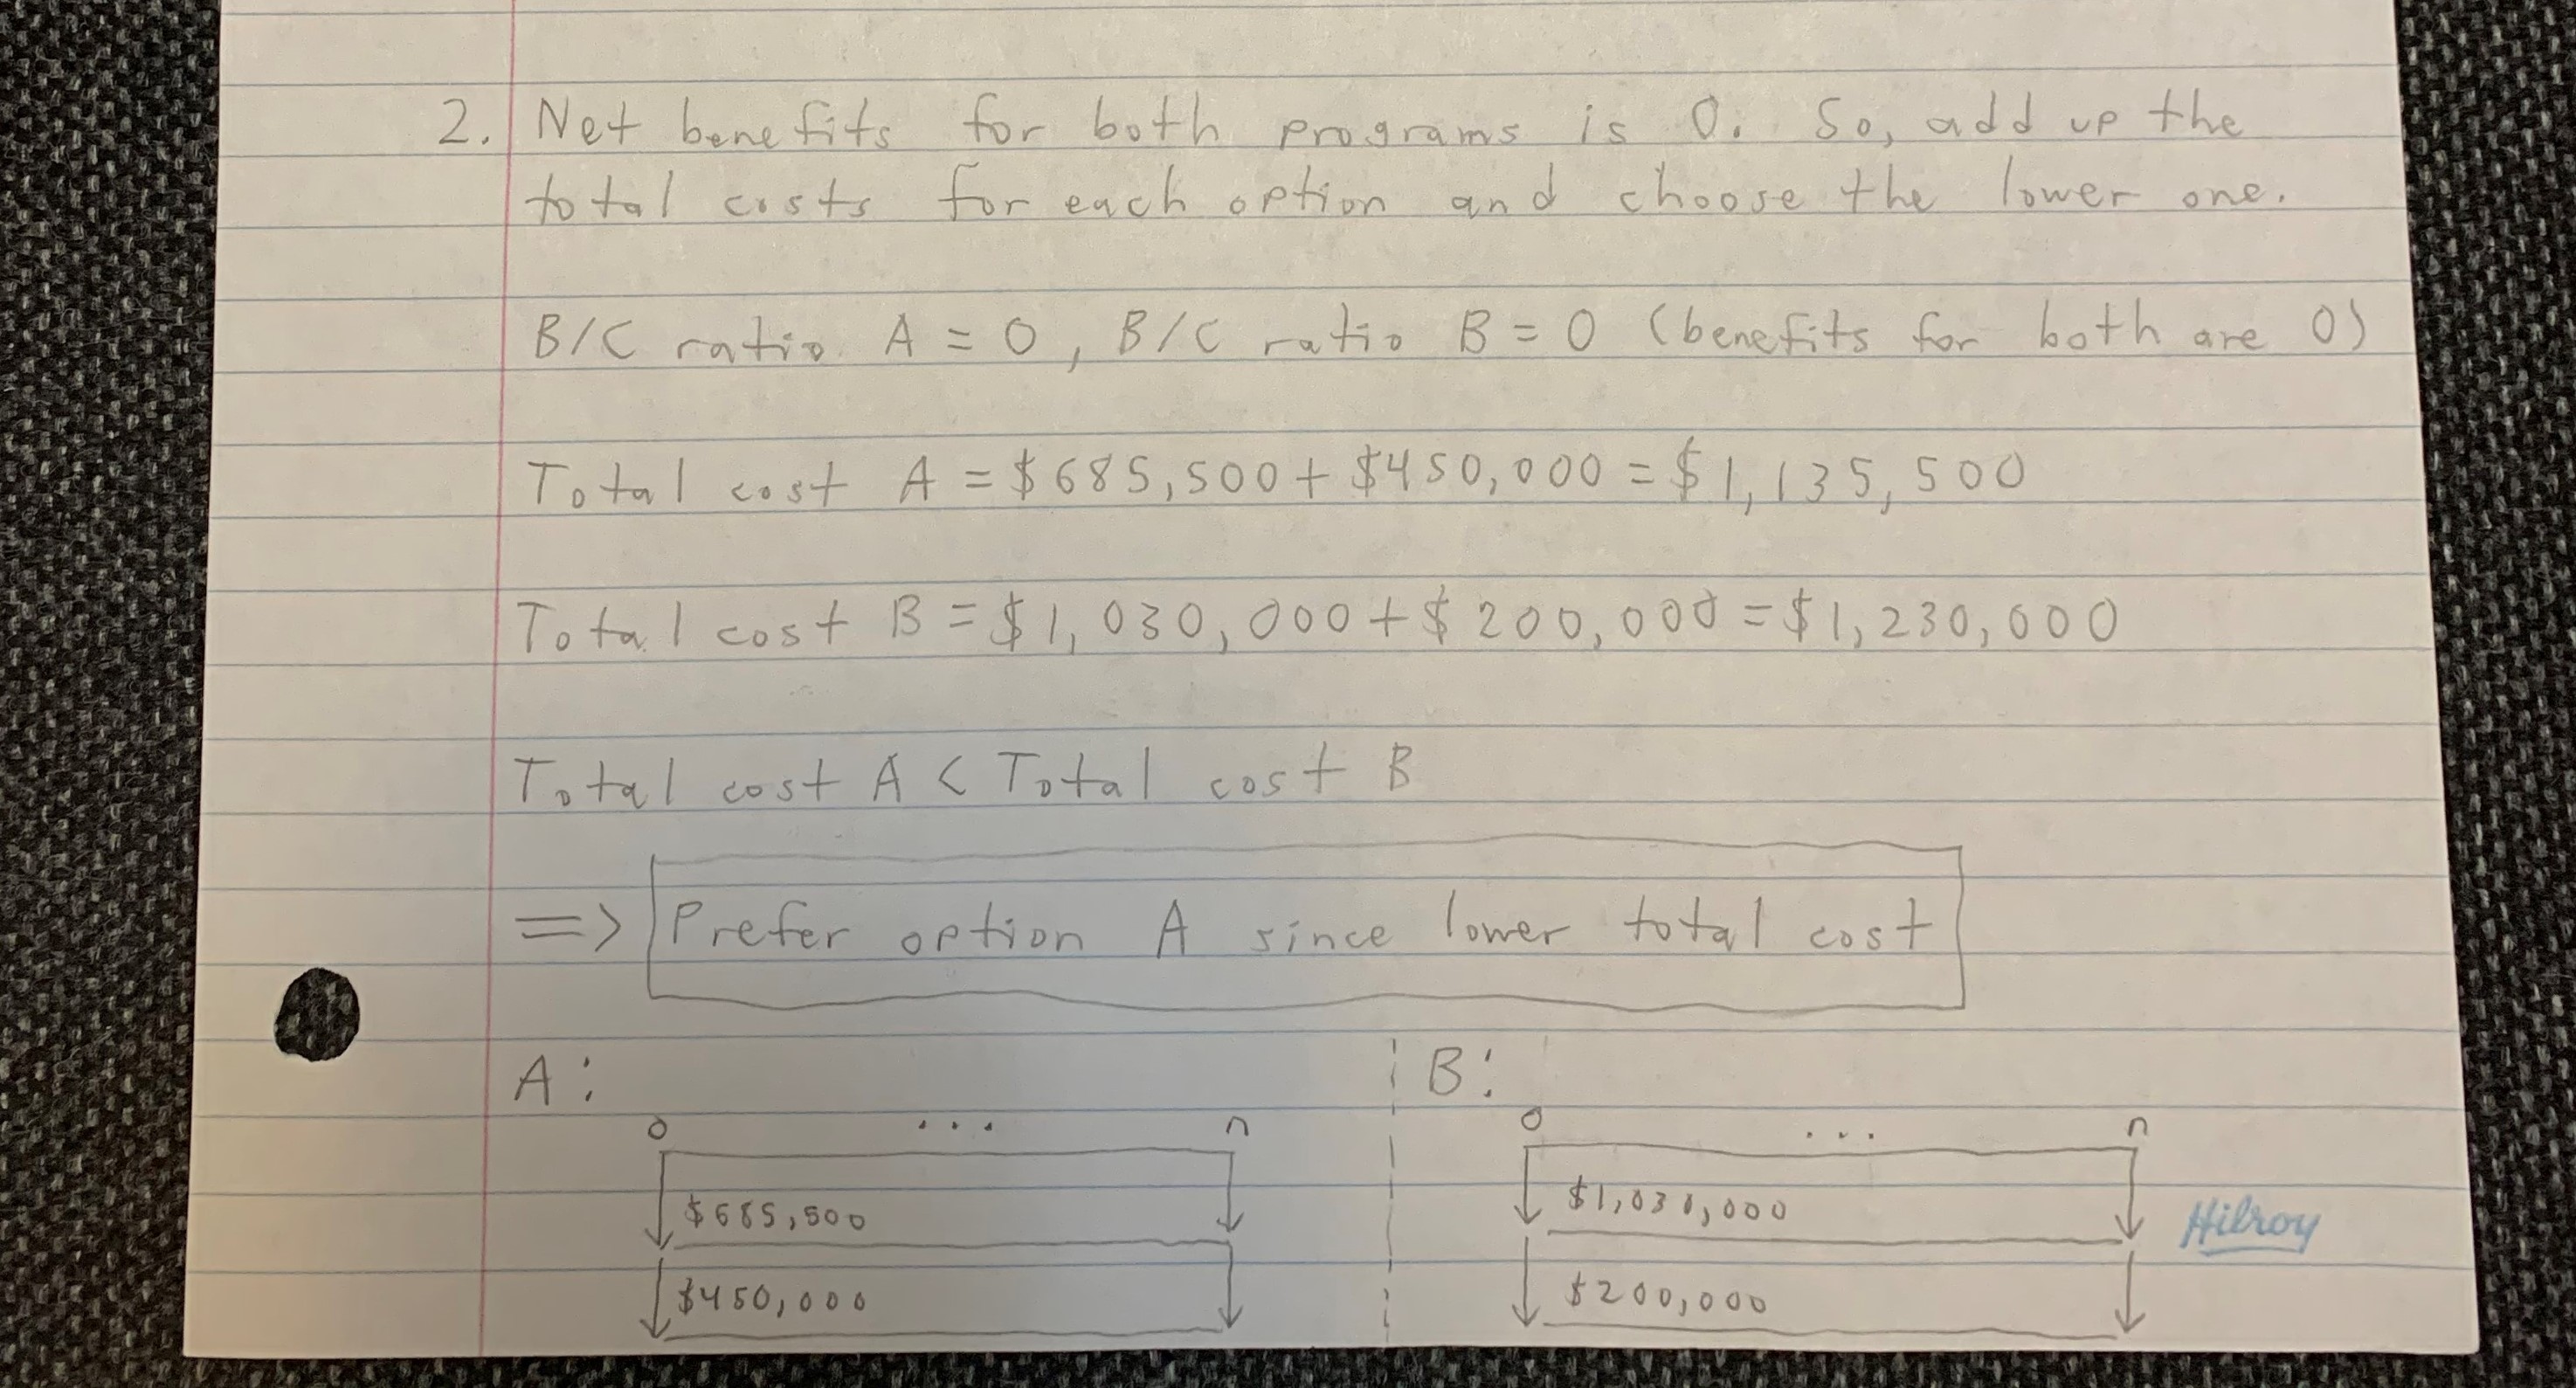 2. Net benefits for both programs is 0. So, add up the
total costs for each option and choose the lower one.
B/C ratio A = 0, B/C ratio B = 0 (benefits for both are 0)
Total cost A = $685,500 + $450,000 = $1,135,500
Total cost B = $1,030,000 + $200,000 = $1,230,000
Total cost A < Total cost B
=> Prefer option A since lower total cost
A: B:
0 ... n 0 ... n
$685,500 $1,030,000
Hilroy
$450,000 $200,000